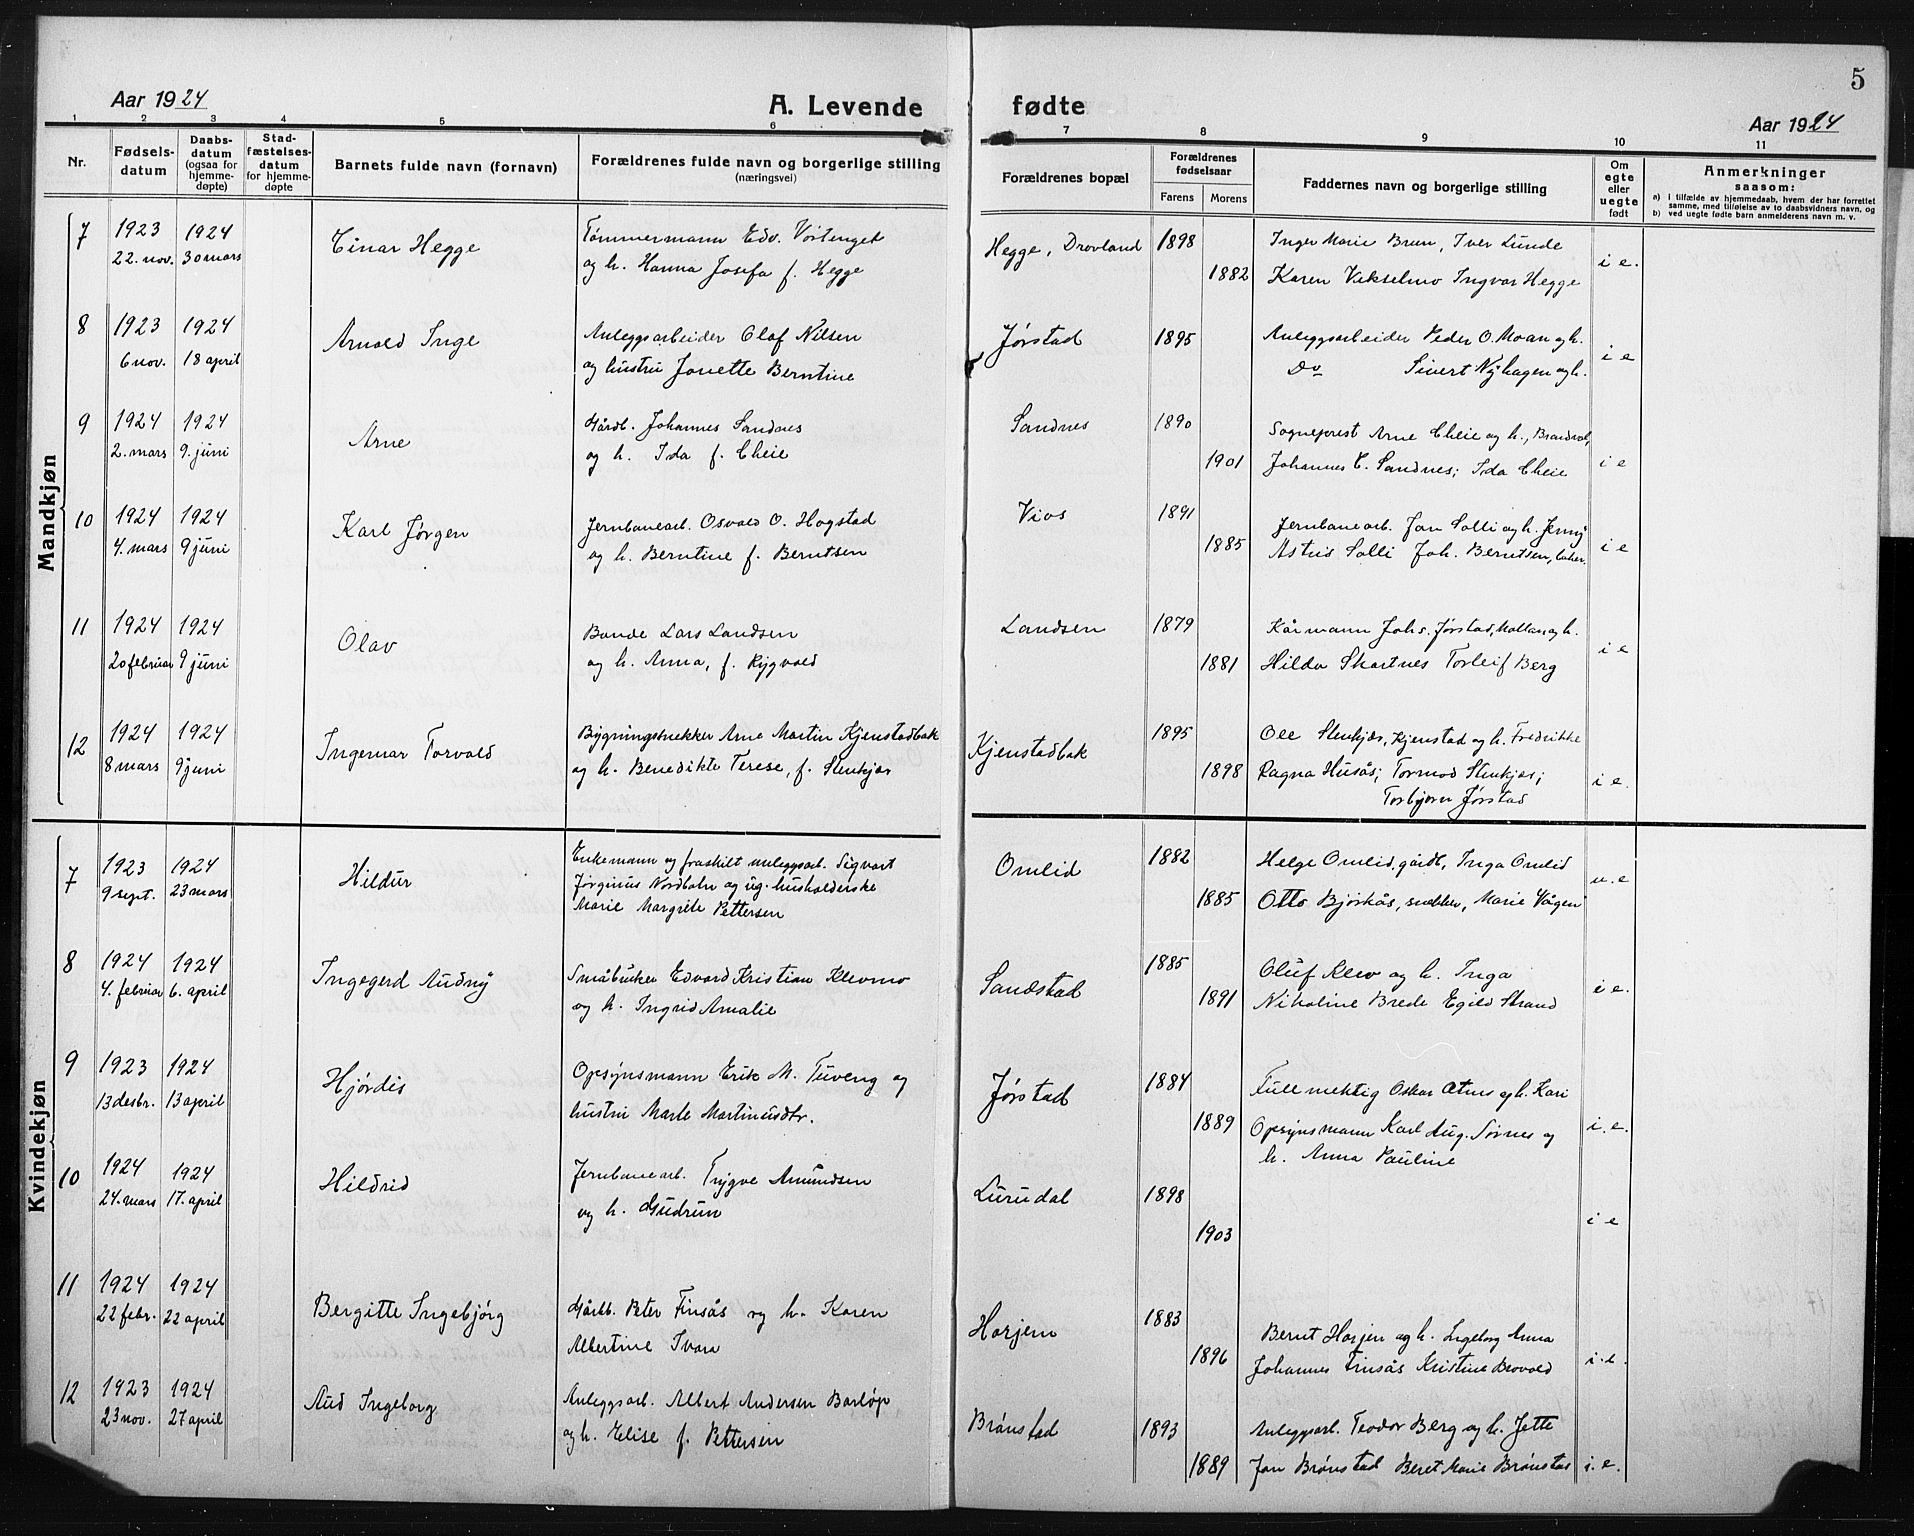 5
Aar 1924
A. Levende fødte
Aar 1924
1 2 3 4 5 6 7 8 9 10 11
Nr.
Fødsels-
datum
Daabs-
datum
(ogsaa for
hjemme-
døpte)
Stad-
fæstelses-
datum
for hjemme-
døpte
Barnets fulde navn (fornavn)
Forældrenes fulde navn og borgerlige stilling
(næringsvei)
Forældrenes bopæl
Forældrenes
fødselsaar
Farens Morens
Faddernes navn og borgerlige stilling
Om
egte
eller
uegte
født
Anmerkninger
saasom:
a) I tilfælde av hjemmedaab, hvem der har forrettet
samme, med tilføielse av to daabsvidners navn, og
b) ved uegte fødte barn anmelderens navn m. v.
Mandkjøn
7 1923 1924 Einar Hegge Tømmermann Edv. Vostenget Hegge, Drovland 1898 Inger Marie Brun, Iver Lunde
22. nov. 30 mars og h. Hanna Josefa f. Hegge 1882 Karen Vekselmo Ingvar Hegge i e.
8 1923 1924 Arnold Inge Anleggsarbeider Olaf Nilsen Jørstad 1895 Anleggsarbeider Peder O. Moan og h.
6 nov. 18 april og hustru Jonette Berntine Do Sivert Nyhagen og h. i e
9 1924 1924 Arne Gårdb. Johannes Sandnes Sandnes 1890 Sogneprest Arne Eheie og h., Brandvol,
2. mars 9. juni og h. Ida f. Eheie 1901 Johannes E. Sandnes; Ida Eheie i e
10 1924 1924 Karl Jørgen Jernbanearb. Osvald O. Hogstad Vios 1891 Jernbanearb. Jon Solli og h. Jenny
4. mars 9 juni og h. Berntine f. Berntsen 1885 Astrid Solli Joh. Berntsen, i e
11 1924 1924 Olav Bonde Lars Landsen Landsen 1879 Kårmann Johs. Jørstad, og h.
20 februar 9 juni og h. Anna, f. Rygvold 1881 Hilda Skartnes Torleif Berg i e
12 1924 1924 Ingemar Torvald Bygningsnekker Arne Martin Kjenstadbak Kjenstadbak 1895 Ole Stenkjær, Kjenstad og h. Fredrikke
8 mars 9 juni og h. Benedikte Terese, f. Stenkjær 1898 Ragna Husås; Tormod Stenkjær; i e.
Torbjørn Jørstad
Kvindekjøn
7 1923 1924 Hildur Enkemann og fraskilt anleggsarb. Sigvart Omlid 1882 Helge Omlid, gårdb, Inga Omlid
9 sept. 23 mars Jørginus Nordbohn og ug. husholderske 1885 Otto Bjørkås, snekker, Marie Vågen u. e
Marie Margrete Pettersen
8 1924 1924 Ingegerd Audny Småbruker Edvard Kristian Klevmo Sandstad 1885 Oluf Klev og h. Inga
4. februar 6. april og h. Ingrid Amalie 1891 Nikoline Brede Egild Strand i e.
9 1923 1924 Hjørdis Opsynsmann Erik M. Tuveng og Jørstad 1884 Fullmektig Oskar og h. Kari
13 desbr. 13 april hustru Marte Martinusdtr. 1889 Opsynsmann Karl Aug. Sørnes og i. e.
h. Anna Pauline
10 1924 1924 Hildrid Jernbanearb. Trygve Amundsen Lurudal 1898
24. mars 17. april og h. Gudrun 1903 i e
11 1924 1924 Bergitte Ingebjørg Gårdb. Peter Finsås og h. Karen Horjem 1883 Bernt Horjen og h. Ingeborg Anna
22 febr. 22 april Albertine Ivara 1896 Johannes Finsås Kristine Brovold i. e.
12 1923 1924 Aud Ingeborg Anleggsarb. Albert Andersen Barløp Brønstad 1893 Anleggsarb. Teodor Berg og h. Jette
23 nov. 27 april og h. Elise f. Pettersen 1889 Jon Brønstad Beret Marie Brønstad i. e.